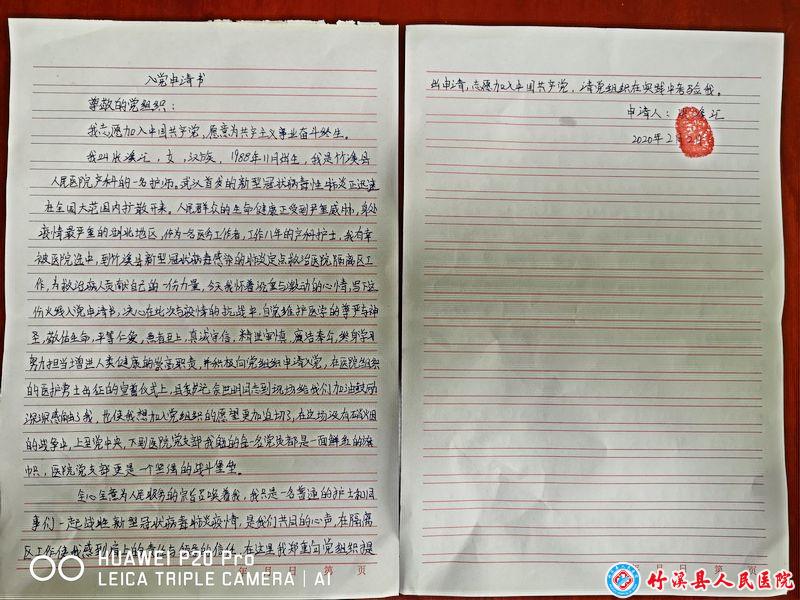 入党申请书
尊敬的党组织：
我志愿加入中国共产党，愿意为共产主义事业奋斗终生。
我叫张溪汇，女，汉族，1988年11月出生，我是竹溪县
人民医院产科的一名护师。武汉首发的新型冠状病毒性肺炎正迅速
在全国大范围内扩散开来。人民群众的生命健康正受到严重威胁，身处
疫情最严重的湖北地区，作为一名医务工作者，工作八年的产科护士，我有幸
被医院选中，到竹溪县新型冠状病毒感染的肺炎定点救治医院隔离区工
作，为救治病人贡献自己的一份力量，今天我怀着沉重与激动的心情，写下这
份火线入党申请书，决心在此次与疫情的抗战中，自觉维护医学的尊严与神
圣，敬佑生命，平等仁爱，患者至上，真诚守信，精进审慎，廉洁奉公，终身学习
努力担当增进人类健康的崇高职责，并积极向党组织申请入党，在医院组织
的医护勇士出征的宣誓仪式上，县委书记余世明同志到现场给我们加油鼓劲
深深感触了我，也使我想加入党组织的愿望更加迫切了，在这场没有硝烟
的战争中，上至党中央，下到医院党支部我触的每一名党员都是一面鲜红的旗
帜，医院党支部更是一个坚强的战斗堡垒。
全心全意为人民服务的宗旨召唤着我，我只是一名普通的护士和同
事们一起战胜新型冠状病毒肺炎疫情，是我们共同的心声，在隔离
区工作使我感到肩上的责任与组织的信任，在这里我郑重向党组织提
年 月 日 第 页
出申请，志愿加入中国共产党，请党组织在实践中考验我。
申请人：溪汇
2020年2月
年 月 日 第 页
HUAWEI P20 Pro
LEICA TRIPLE CAMERA | AI
竹溪县人民医院